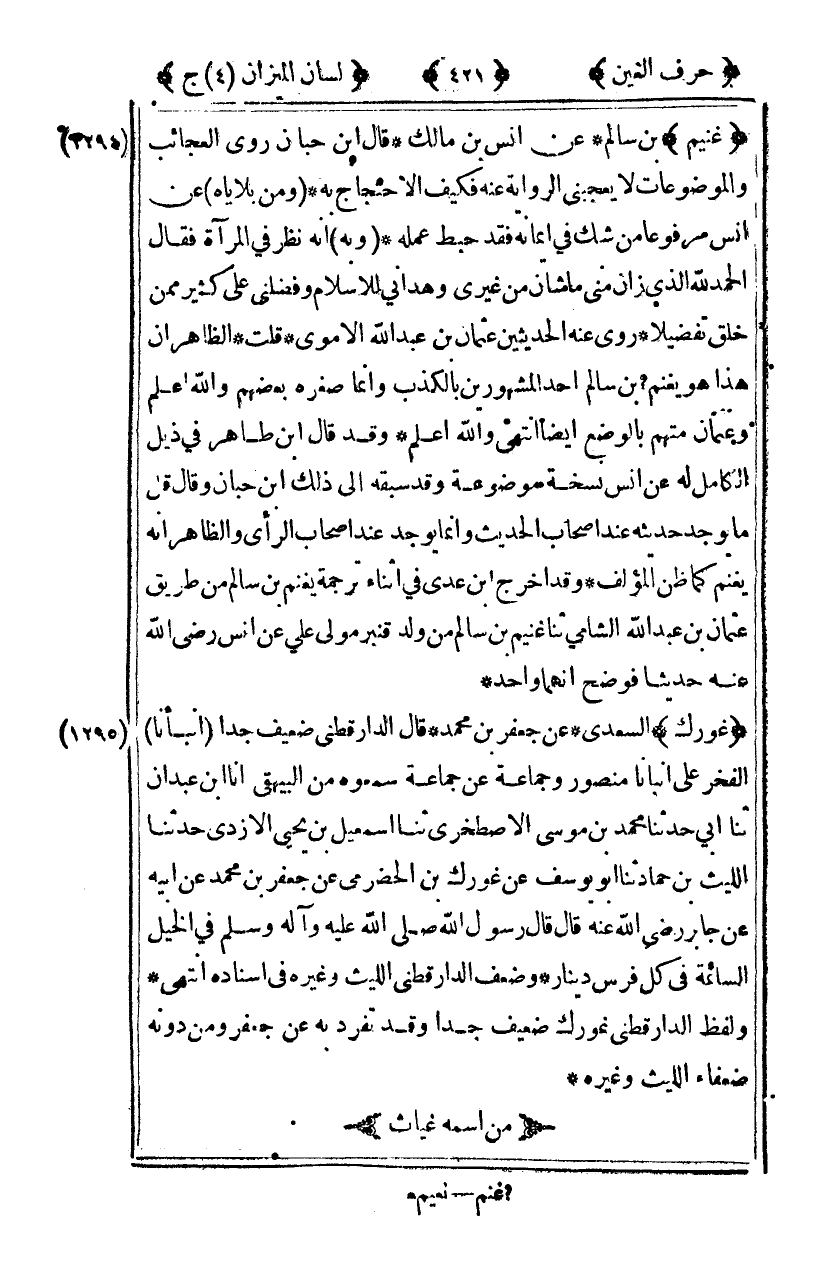 ﴿ حرف الغين ﴾ ﴿ ٤٢١ ﴾ ﴿ لسان الميزان (٤) ج ﴾
﴿ غنيم ﴾ بن سالم * عن انس بن مالك * قال ابن حبان روى العجائب (١٢٩٤)
والموضوعات لا يعجبنى الرواية عنه فكيف الاحتجاج به * (ومن بلاياه) عن
انس مرفوعا من شك في ايمانه فقد حبط عمله * (وبه) انه نظر في المرآة فقال
الحمد لله الذي زان منى ماشان من غيرى وهداني للاسلام وفضلنى على كثير ممن
خلق تفضيلا * روى عنه الحديثين عثمان بن عبدالله الاموى * قلت * الظاهر ان
هذا هو يغنم ? بن سالم احد المشهورين بالكذب وانما صغره بعضهم والله اعلم
وعثمان متهم بالوضع ايضا انتهى والله اعلم * وقد قال ابن طاهر في ذيل
الكامل له عن انس نسخة موضوعة وقد سبقه الى ذلك ابن حبان وقال قل
ما يوجد حديثه عند اصحاب الحديث وانما يوجد عند اصحاب الرأى والظاهر انه
يغنم كما ظن المؤلف * وقد اخرج ابن عدى في اثناء ترجمة يغنم بن سالم من طريق
عثمان بن عبدالله الشامي ثنا غنيم بن سالم من ولد قنبر مولى علي عن انس رضى الله
عنه حديثا فوضح انهما واحد *
﴿ غورك ﴾ السعدى * عن جعفر بن محمد * قال الدارقطنى ضعيف جدا (انبأنا) (١٢٩٥)
الفخر على انبانا منصور وجماعة عن جماعة سمعوه من البيهقى انا ابن عبدان
ثنا ابي حدثنا محمد بن موسى الاصطخرى ثنا اسمعيل بن يحيى الازدى حدثنا
الليث بن حماد ثنا ابو يوسف عن غورك بن الحضرمى عن جعفر بن محمد عن ابيه
عن جابر رضى الله عنه قال قال رسول الله صلى الله عليه وآله وسلم في الخيل
السائمة فى كل فرس دينار * وضعف الدارقطنى الليث وغيره فى اسناده انتهى *
ولفظ الدارقطنى غورك ضعيف جدا وقد تفرد به عن جعفر ومن دونه
ضعفاء الليث وغيره *
﴿ من اسمه غياث ﴾
? غنم — نعيم